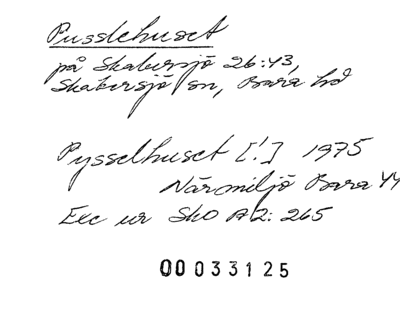 Pusslehuset
på Skabersjö 26:43,
Skabersjö sn, Bara hd
Pysselhuset [!] 1975
Närmiljö Bara 44
Exc ur SkO A2: 265
00033125